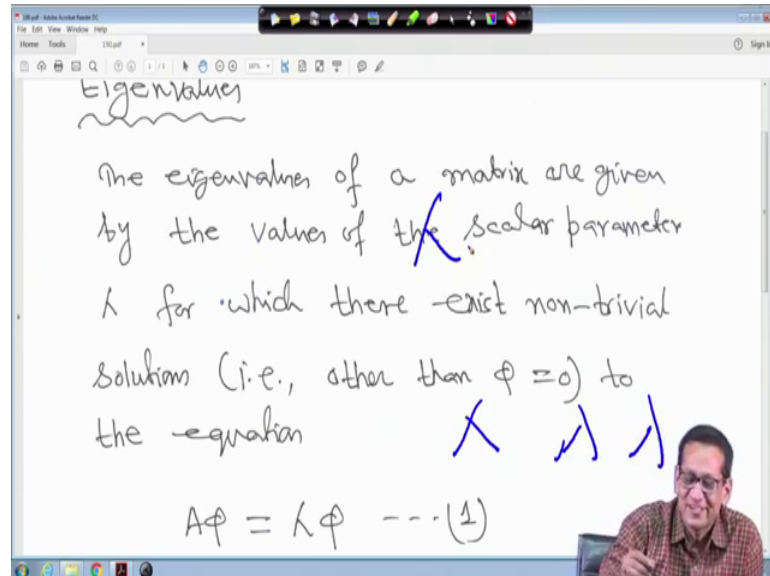 190.pdf - Adobe Acrobat Reader DC
File Edit View Window Help
Home Tools 190.pdf × Sign In
1 / 1
Eigenvalues
The eigenvalues of a matrix are given
by the values of the λ scalar parameter
λ for which there exist non-trivial
solutions (i.e., other than φ = 0) to
the equation λ λ λ
Aφ = λφ ---(1)